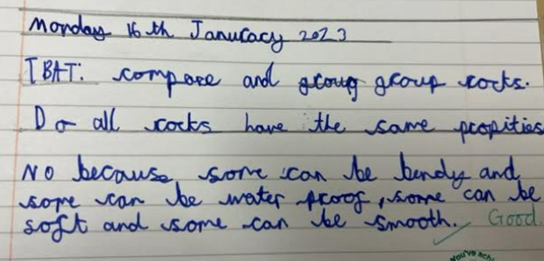 Monday 16th Janucacy 2023
TBAT: compare and groug group rocks.
Do all rocks have the same propities
No because some can be bendy and
some can be water proof, some can be
soft and some can be smooth. Good.
You've achi